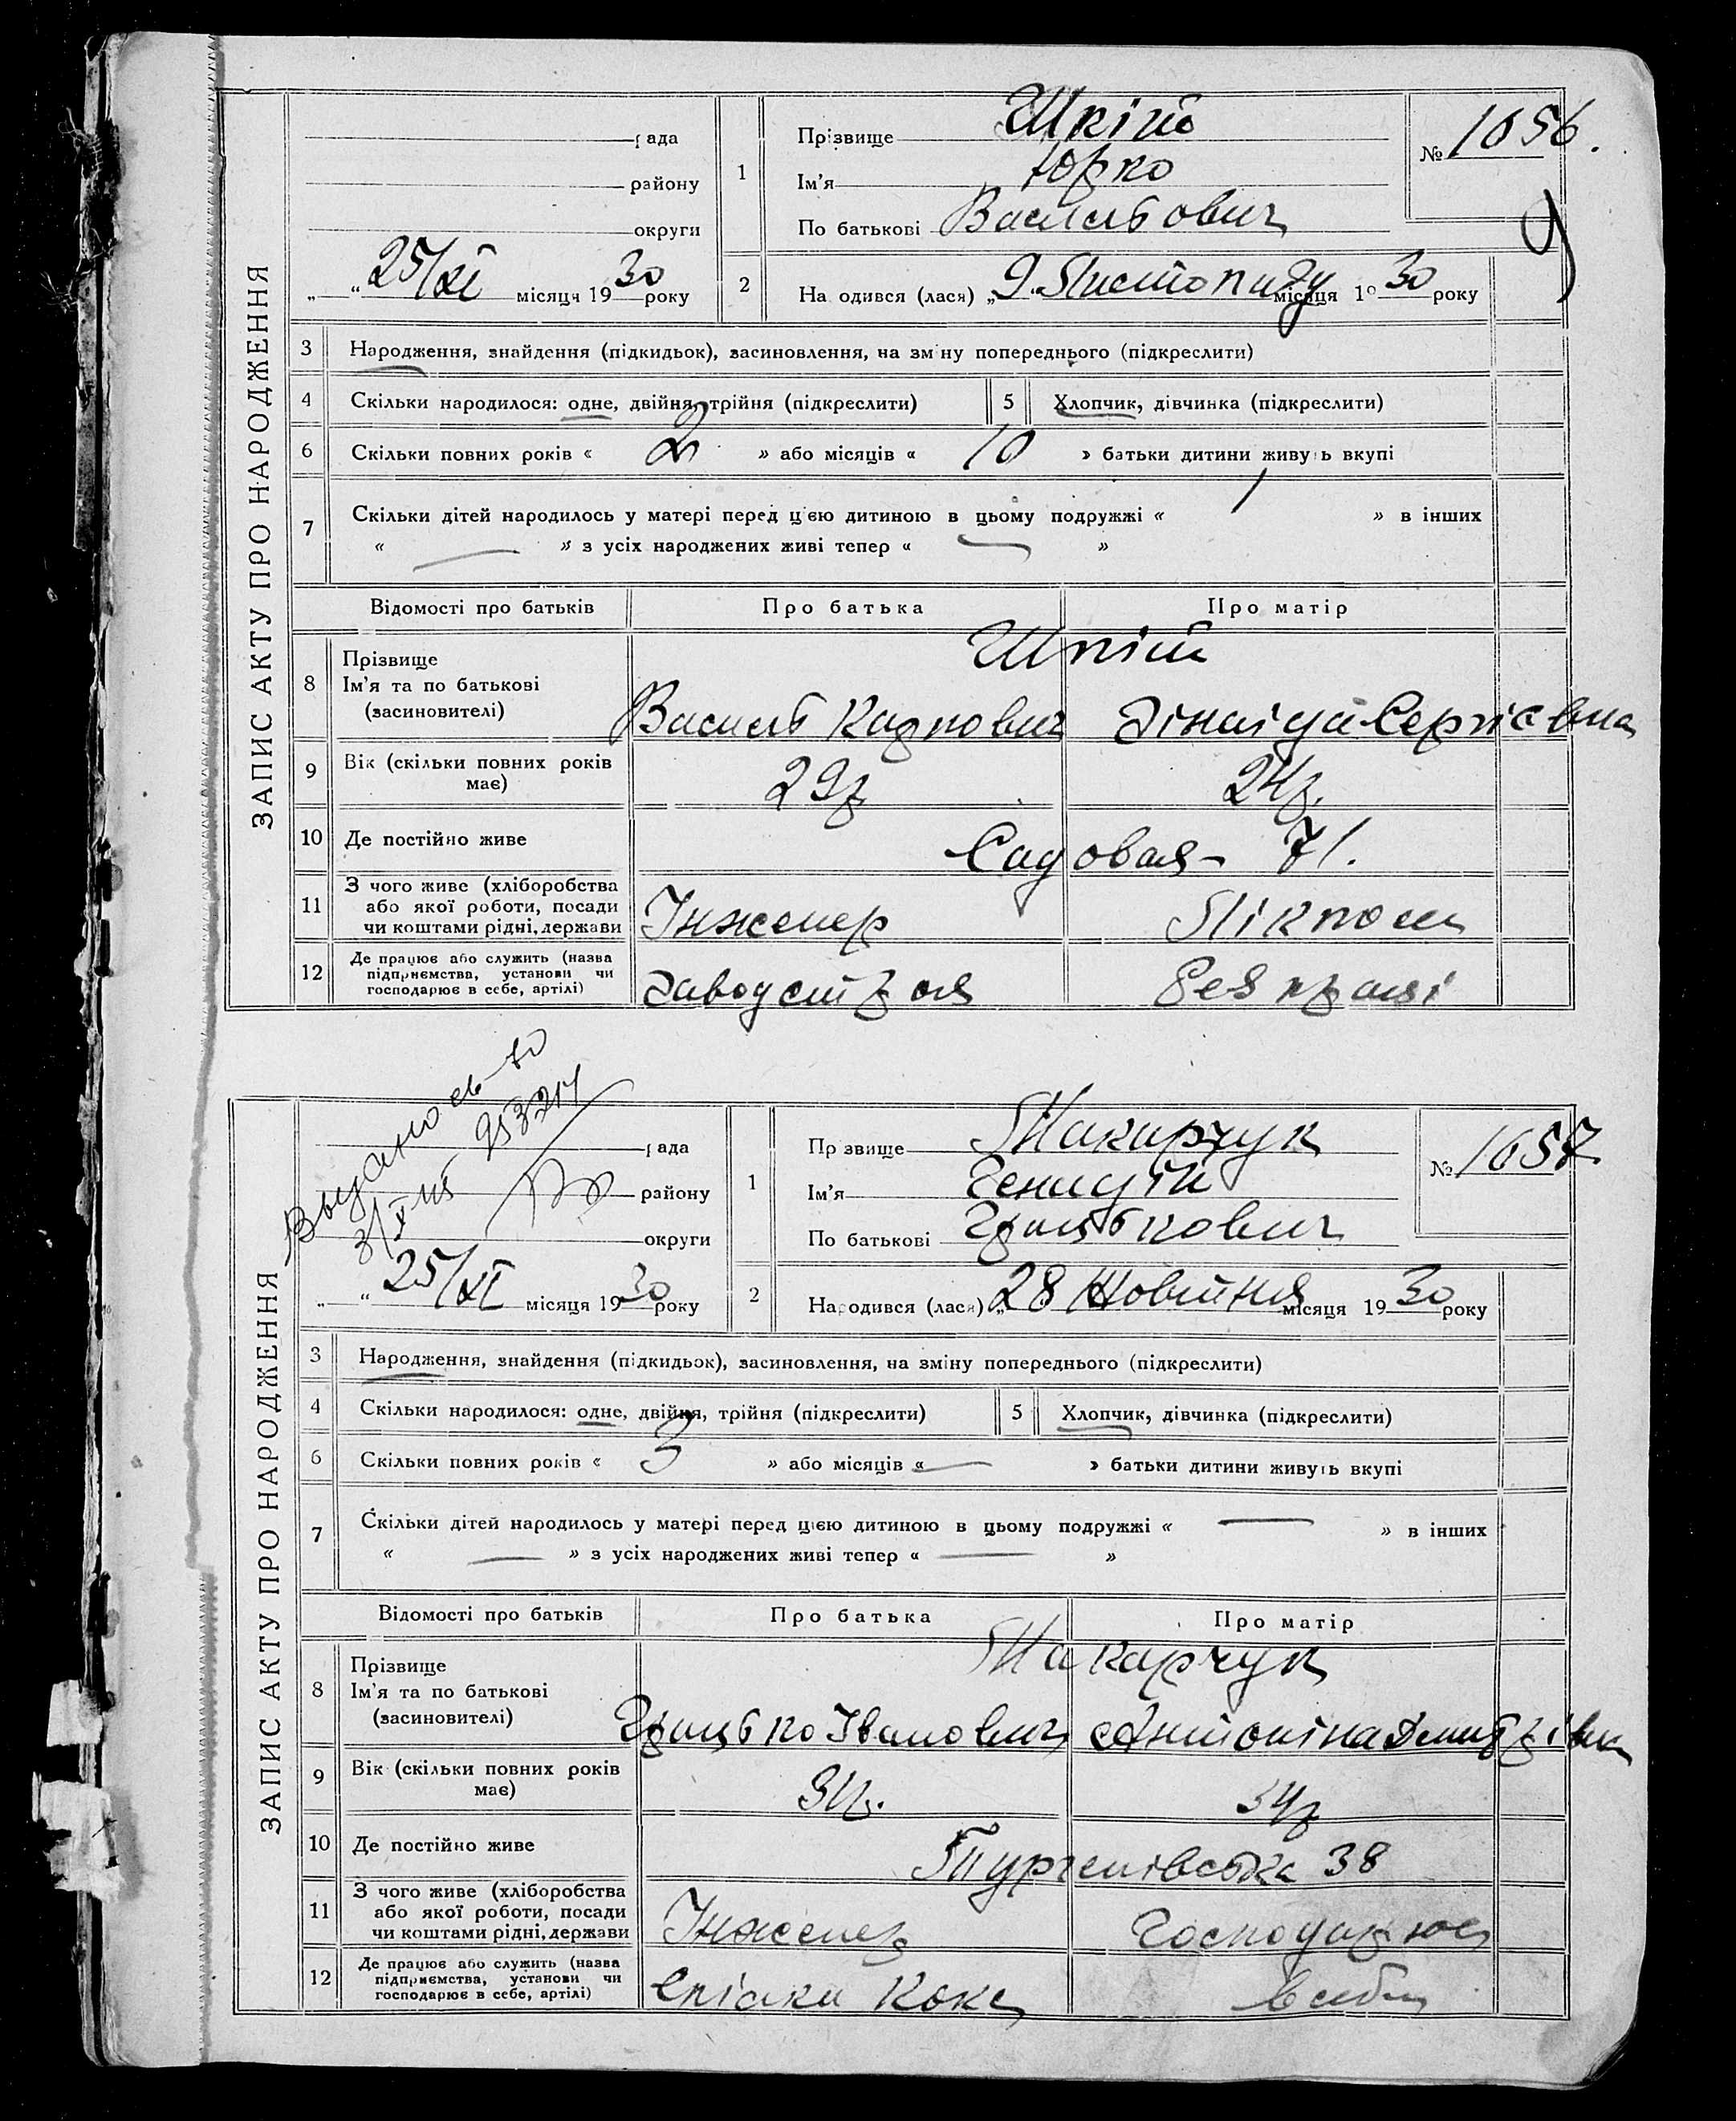 ЗАПИС АКТУ ПРО НАРОДЖЕННЯ
рада
району
округи
„ “ 25/XI місяця 1930 року
1
Прізвище Шкіть
Ім'я Юрко
По батькові Васильович
№ 1656.
2
На одився (лася) „ 9 Листопаду місяця 1930 року
3 Народження, знайдення (підкидьок), засиновлення, на зміну попереднього (підкреслити)
4 Скільки народилося: одне, двійня, трійня (підкреслити)
5 Хлопчик, дівчинка (підкреслити)
6 Скільки повних років « 2 » або місяців « 10 » батьки дитини живуть вкупі
7 Скільки дітей народилось у матері перед цією дитиною в цьому подружжі « 1 » в інших
« — » з усіх народжених живі тепер « — »
Відомості про батьків Про батька Про матір
8 Прізвище
Ім'я та по батькові
(засиновителі)
Василь Карпович Зінаіда Сергієвна
9 Вік (скільки повних років
має)
29р 24р.
10 Де постійно живе Садовая – 71.
11 З чого живе (хліборобства
або якої роботи, посади
чи коштами рідні, держави
Інженер Лікпом
12 Де працює або служить (назва
підприємства, установи чи
господарює в себе, артілі)
Без праці
ЗАПИС АКТУ ПРО НАРОДЖЕННЯ
Выдано св-во
рада
району
округи
„ “ 25/XI місяця 1930 року
1
Пр звище Макарчук
Ім'я Генадій
По батькові Грицькович
№ 1657
2
Народився (лася) „ 28 Жовтня місяця 1930 року
3 Народження, знайдення (підкидьок), засиновлення, на зміну попереднього (підкреслити)
4 Скільки народилося: одне, двійня, трійня (підкреслити)
5 Хлопчик, дівчинка (підкреслити)
6 Скільки повних років « 3 » або місяців « — » батьки дитини живуть вкупі
7 Скільки дітей народилось у матері перед цією дитиною в цьому подружжі « — » в інших
« — » з усіх народжених живі тепер « — »
Відомості про батьків Про батька Про матір
8 Прізвище
Ім'я та по батькові
(засиновителі)
Макарчук
Грицько Іванович Антоніна Дмитрівна
9 Вік (скільки повних років
має)
34р. 34р
10 Де постійно живе Тургенівська 38
11 З чого живе (хліборобства
або якої роботи, посади
чи коштами рідні, держави
Інженер Господарює
12 Де працює або служить (назва
підприємства, установи чи
господарює в себе, артілі)
в себе